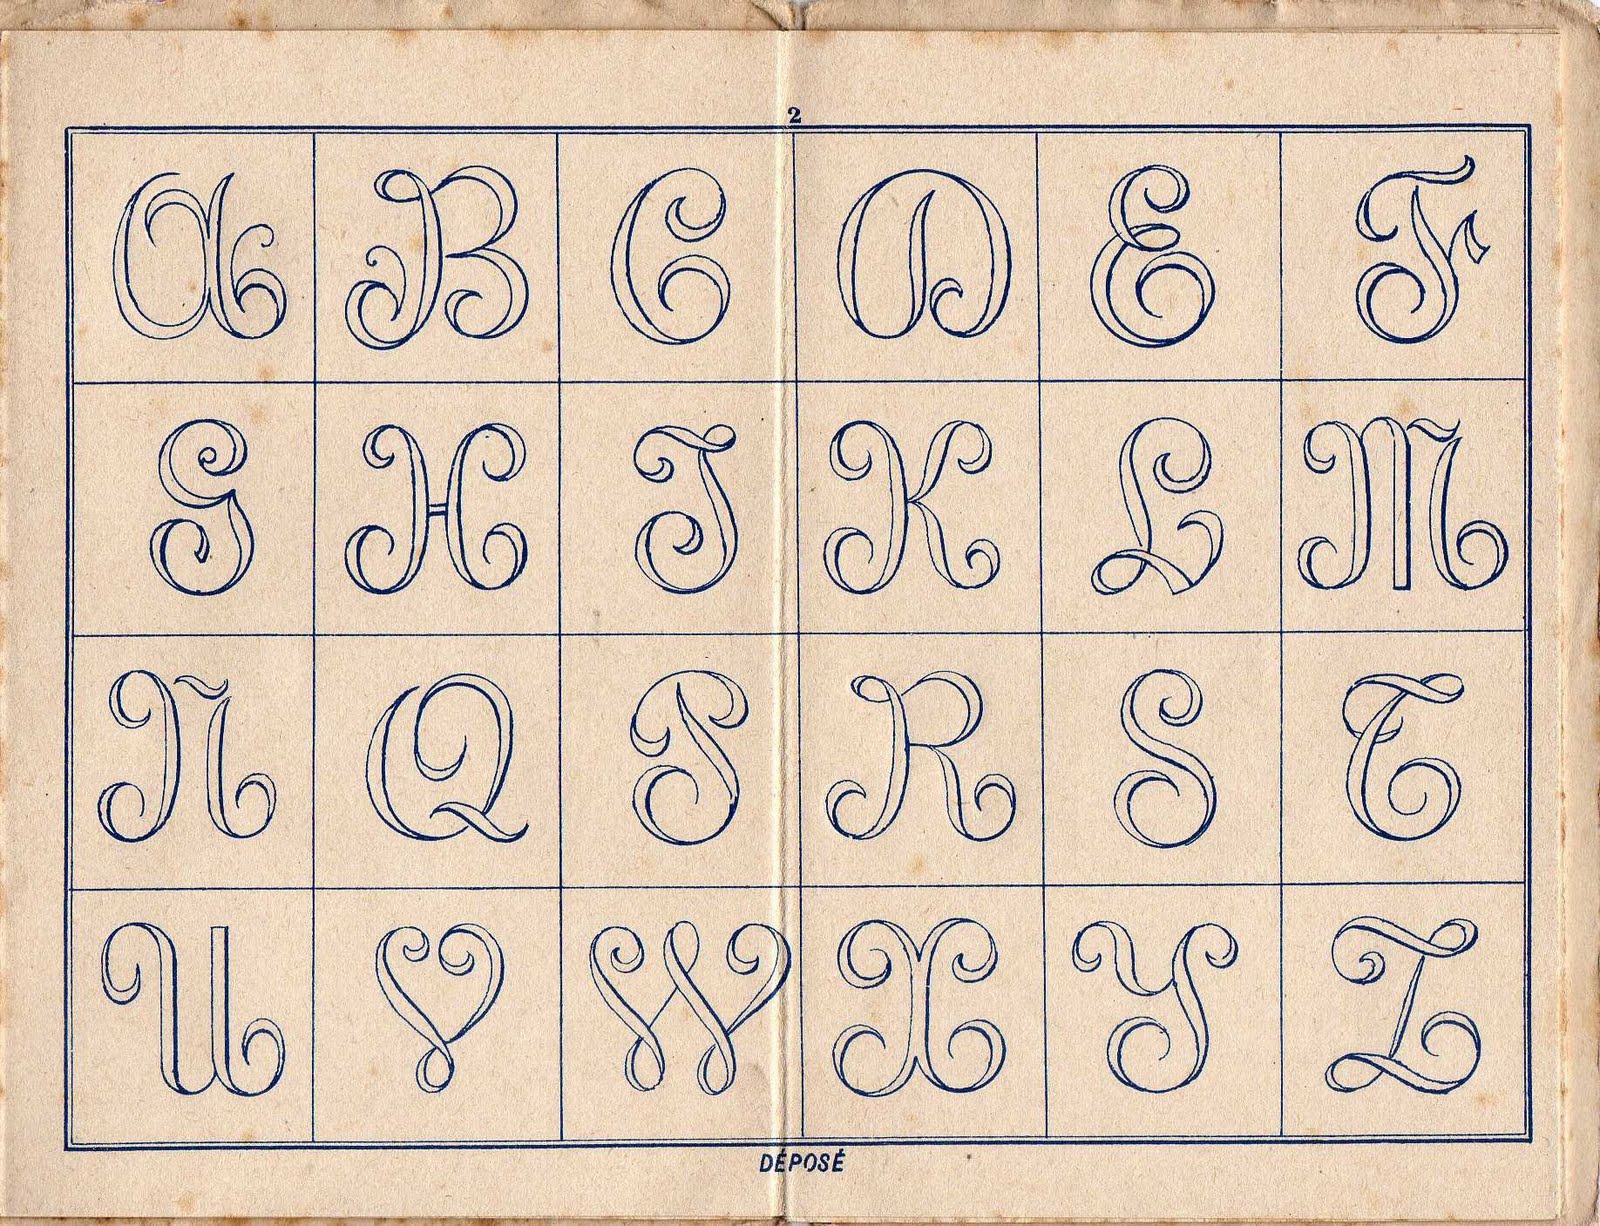 2
A B C D E F
G H J K L M
N Q P R S T
U V W X Y Z
DÉPOSÉ